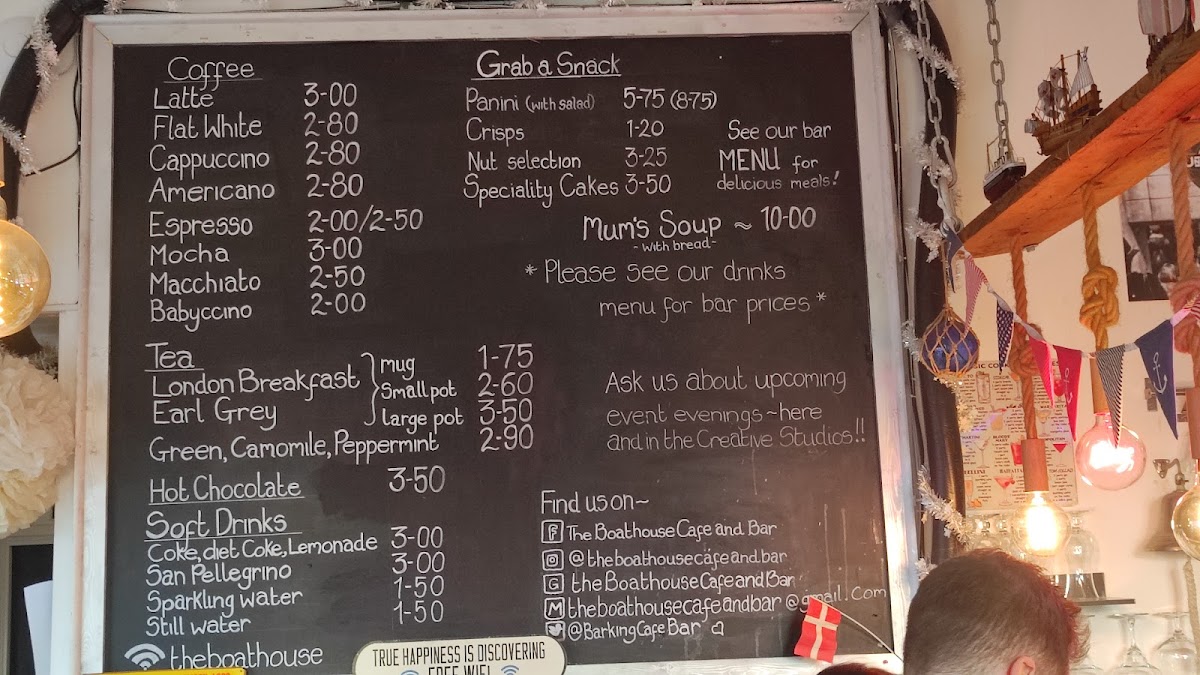 Coffee
Latte 3-00
Flat White 2-80
Cappuccino 2-80
Americano 2-80
Espresso 2-00/2-50
Mocha 3-00
Macchiato 2-50
Babyccino 2-00
Tea
London Breakfast
Earl Grey
mug 1-75
Small pot 2-60
large pot 3-50
Green, Camomile, Peppermint 2-90
Hot Chocolate 3-50
Soft Drinks
Coke, diet Coke, Lemonade 3-00
San Pellegrino 3-00
Sparkling water 1-50
Still water 1-50
theboathouse
Grab a Snack
Panini (with salad) 5-75 (8-75)
Crisps 1-20
Nut selection 3-25
Speciality Cakes 3-50
See our bar
MENU for
delicious meals!
Mum's Soup ~ 10-00
- with bread -
* Please see our drinks
menu for bar prices *
Ask us about upcoming
event evenings ~ here
and in the Creative Studios!!
Find us on ~
The Boathouse Cafe and Bar
@theboathousecafeandbar
G the Boathouse Cafe and Bar
M theboathousecafeandbar@gmail.com
@BarkingCafeBar
TRUE HAPPINESS IS DISCOVERING
FREE WIFI